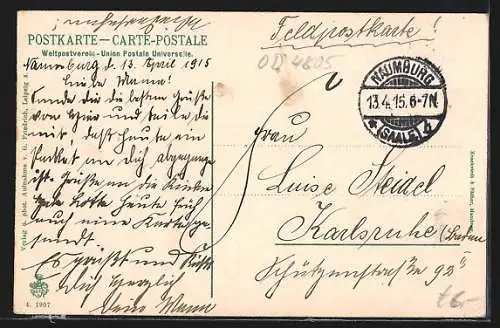 Feldpostkarte!
POSTKARTE — CARTE-POSTALE
Weltpostverein - Union Postale Universelle.
Naumburg d. 13. April 1915
Liebe Mama!
Sende dir die besten Grüße
von hier und teile dir
mit, daß heute ein
Packet an dich abgegangen
ist. Grüße an die Kinder
habe heute früh
auch eine Karte ge-
sandt
Es grüßt und küßt
Dich herzlich
Dein Mann
NAUMBURG
13.4.15.6-7N.
* (SAALE) 4
Frau
Luise Steidel
Karlsruhe (Baden
Schützenstraße 92
Verlag u. phot. Aufnahme v. G. Friedrich, Leipzig
4. 1907